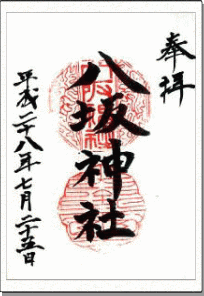 奉拝
八坂神社
平成二十八年七月二十五日